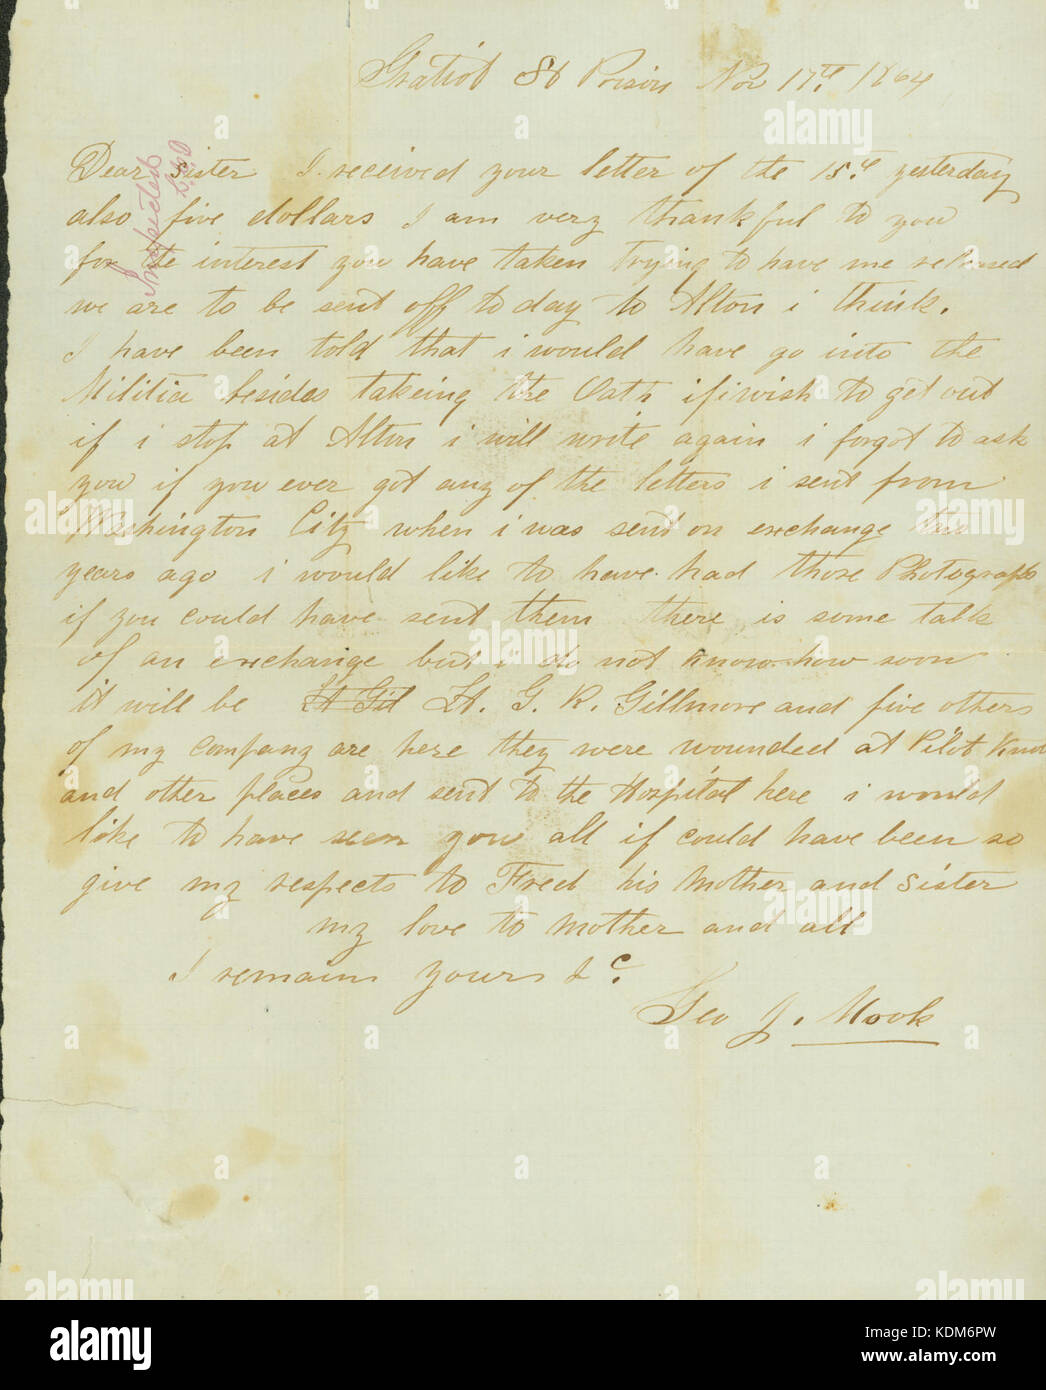 Gratiot St Prison Nov 17th 1864
Dear sister I received your letter of the 15th yesterday
also five dollars I am very thankful to you
for the interest you have taken trying to have me released
we are to be sent off to day to Alton i think.
I have been told that i would have go into the
Militia besides takeing the Oath if i wish to get out
if i stop at Alton i will write again i forgot to ask
you if you ever got any of the letters i sent from
Washington City when i was sent on exchange two
years ago i would like to have had those Photographs
if you could have sent them there is some talk
of an exchange but i do not know how soon
it will be Lt Gil Lt. G. R. Gillmore and five others
of my company are here they were wounded at Pilot Knob
and other places and sent to the Hospital here i would
like to have seen you all if could have been so
give my respects to Fred his Mother and sister
my love to Mother and all
I remain yours &c.
Geo J. Mook
Inspected
alamy
alamy
alamy
alamy
alamy
alamy
alamy
alamy
alamy
a
a
a
a
a
a
a
a
a
alamy
Image ID: KDM6PW
www.alamy.com